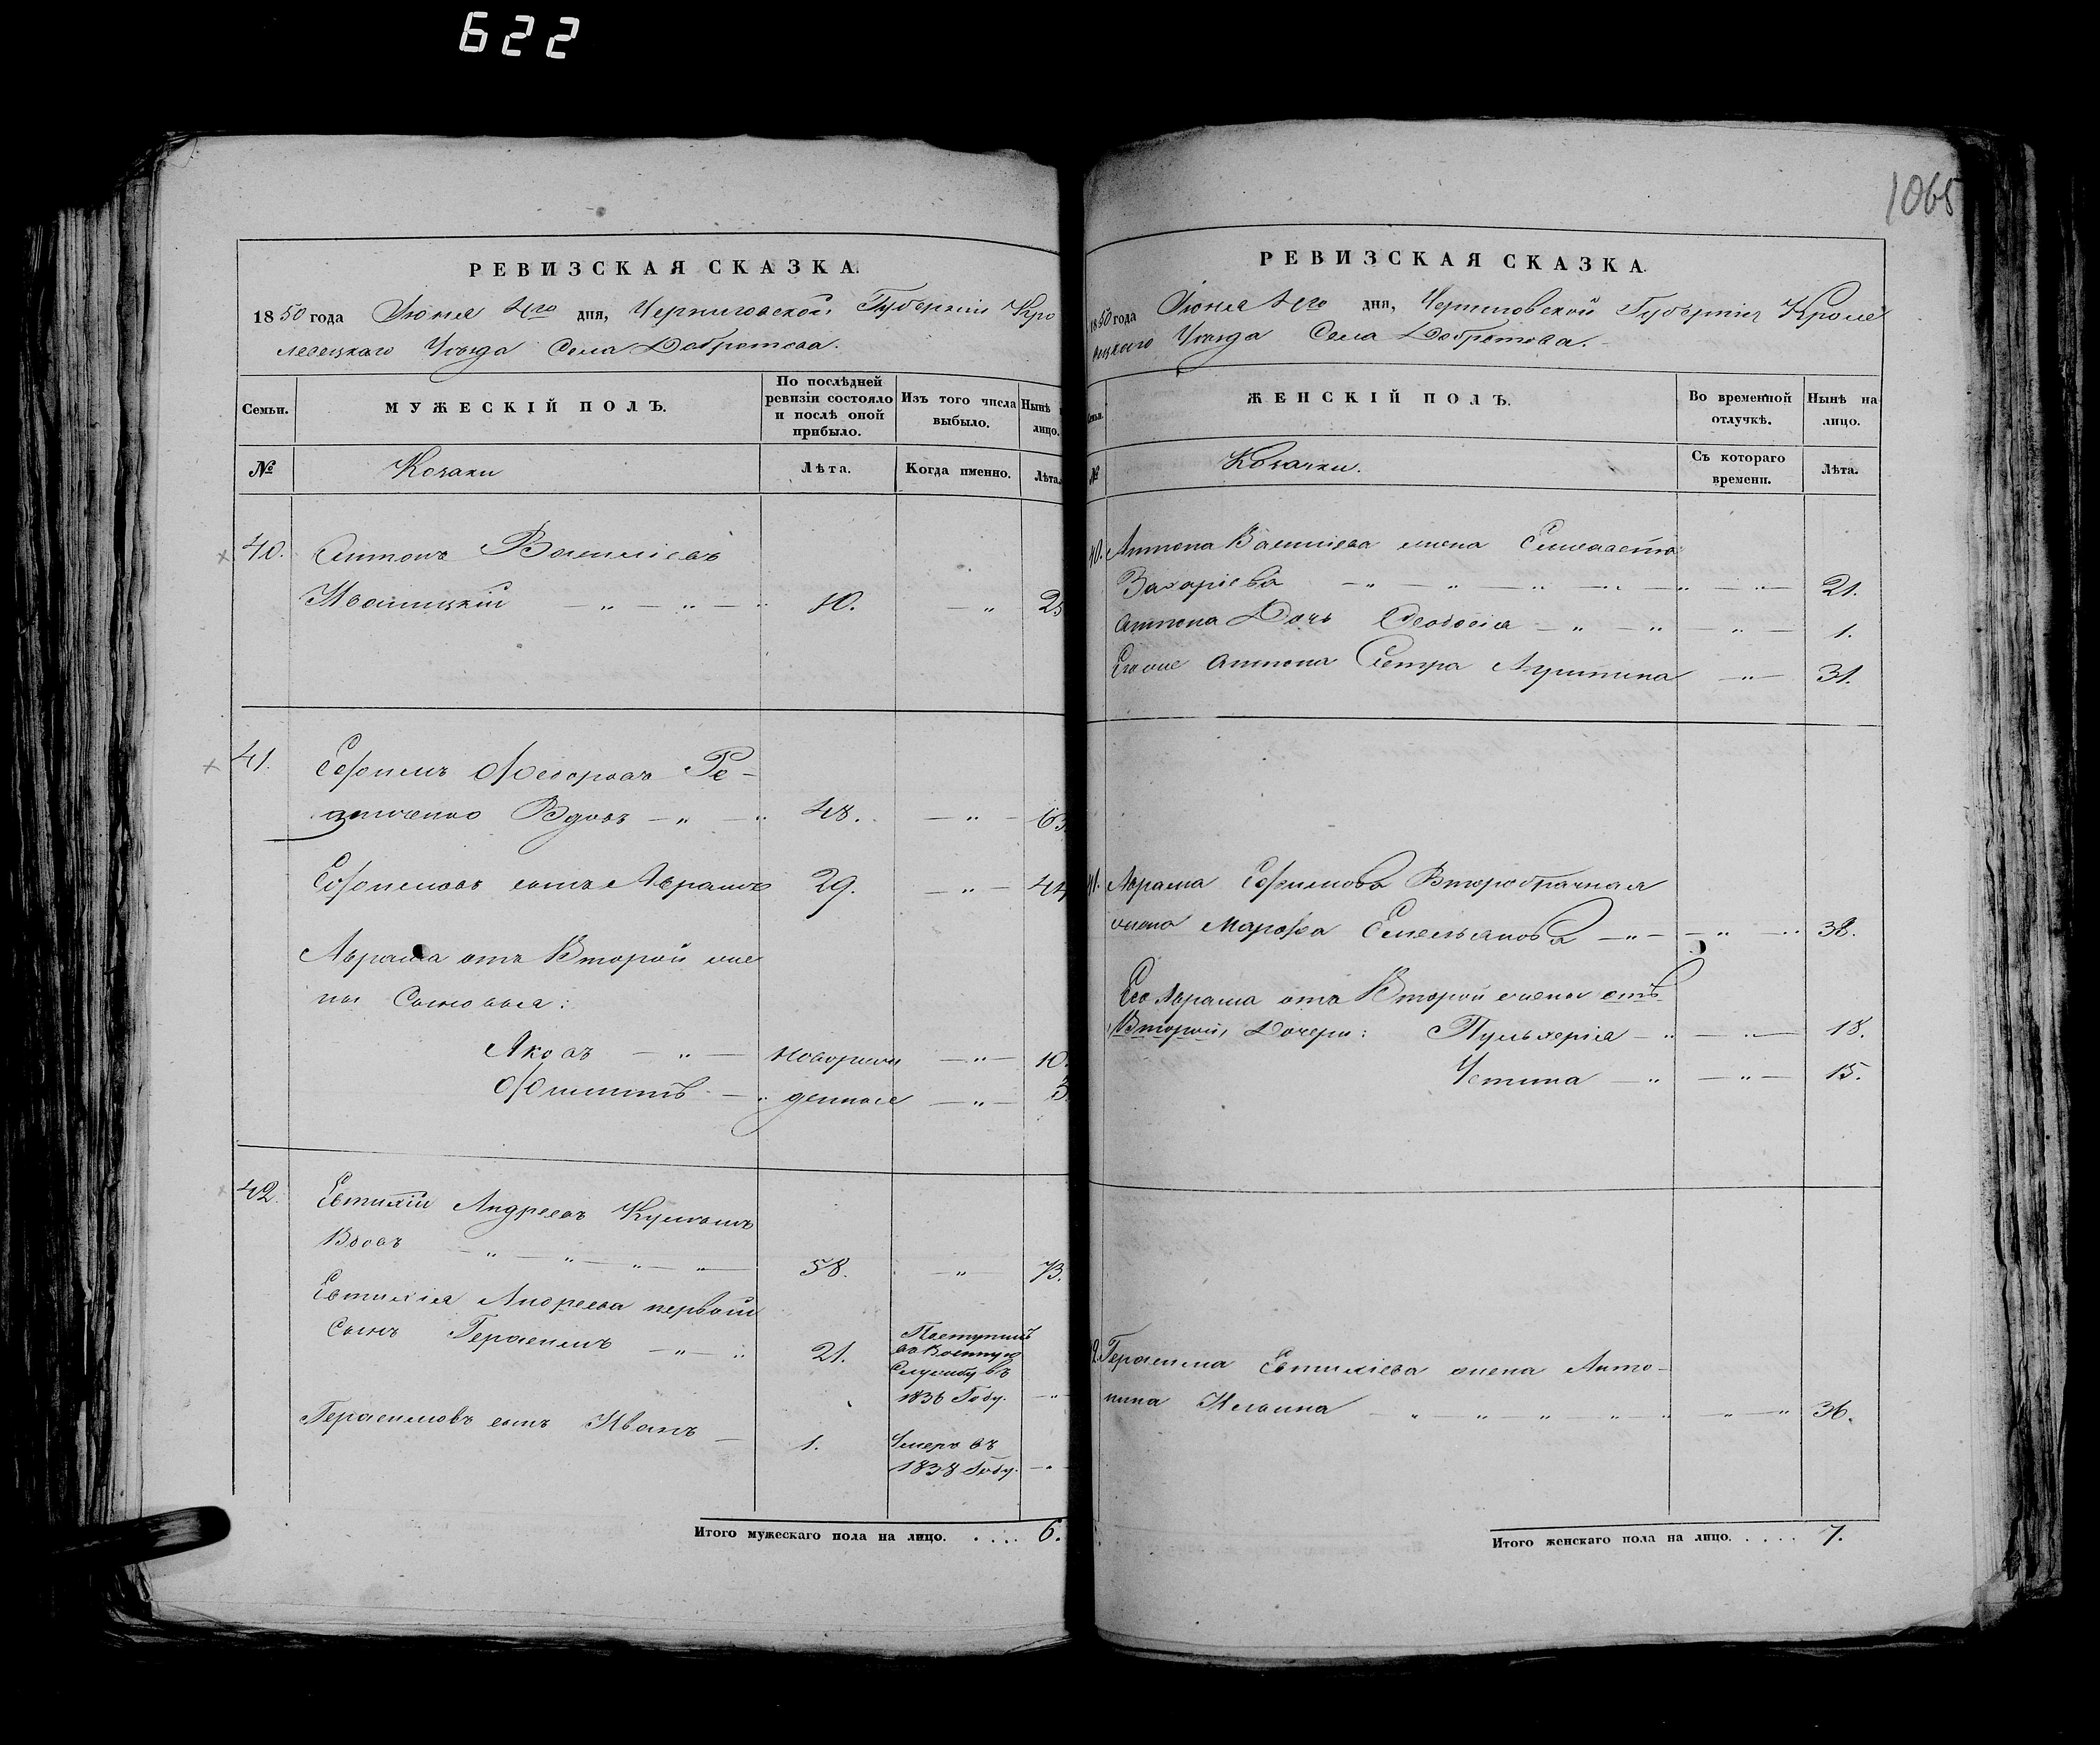 622
1065
РЕВИЗСКАЯ СКАЗКА.
1850 года Июня 4го дня, Черниговской Губерніи Кро
левецкаго Уѣзда Села Добротова.
Семьи.
МУЖЕСКІЙ ПОЛЪ.
По послѣдней ревизіи состояло и послѣ оной прибыло.
Изъ того числа выбыло.
Нынѣ
лицо.
№
Козаки
Лѣта.
Когда именно.
Лѣта.
40. Антонъ Василіевъ
10. 25
41. Ефимъ Федоровъ Ре-
зниченко Вдовъ 48. 63
Ефимовъ сынъ Абрамъ 29. 44
Абрама отъ Второй же
ны Сыновья:
Яковъ новорож 10.
Филиппъ денные 3.
42. Евтихій Андреевъ
Вдовъ 58. 73.
Евтихія Андреева первый
сынъ Герасимъ 21. Поступилъ
въ Военную
Службу въ
1836 Году.
Герасимовъ сынъ Иванъ 1. Умеръ въ
1838 Году.
Итого мужескаго пола на лицо. . . . . 6.
РЕВИЗСКАЯ СКАЗКА.
1850 года Июня 4го дня, Черниговской Губерніи Кроле
вецкаго Уѣзда Села Добротова.
ЖЕНСКІЙ ПОЛЪ.
Во временной отлучкѣ.
Нынѣ на лицо.
№
Козачки.
Съ котораго времени.
Лѣта.
40. Антона Василіева жена
Захаріева 21.
Антона Дочь Феодосія 1.
Его же Антона Сестра 31.
41. Абрама Ефимова Второбрачная
жена Марфа Емельянова 38.
Его Абрама отъ Второй жены отъ
Второй, Дочери: Пульхерія 18.
Устина 15.
42. Герасима Евтихіева жена Анто-
нина 36.
Итого женскаго пола на лицо. . . . . 7.